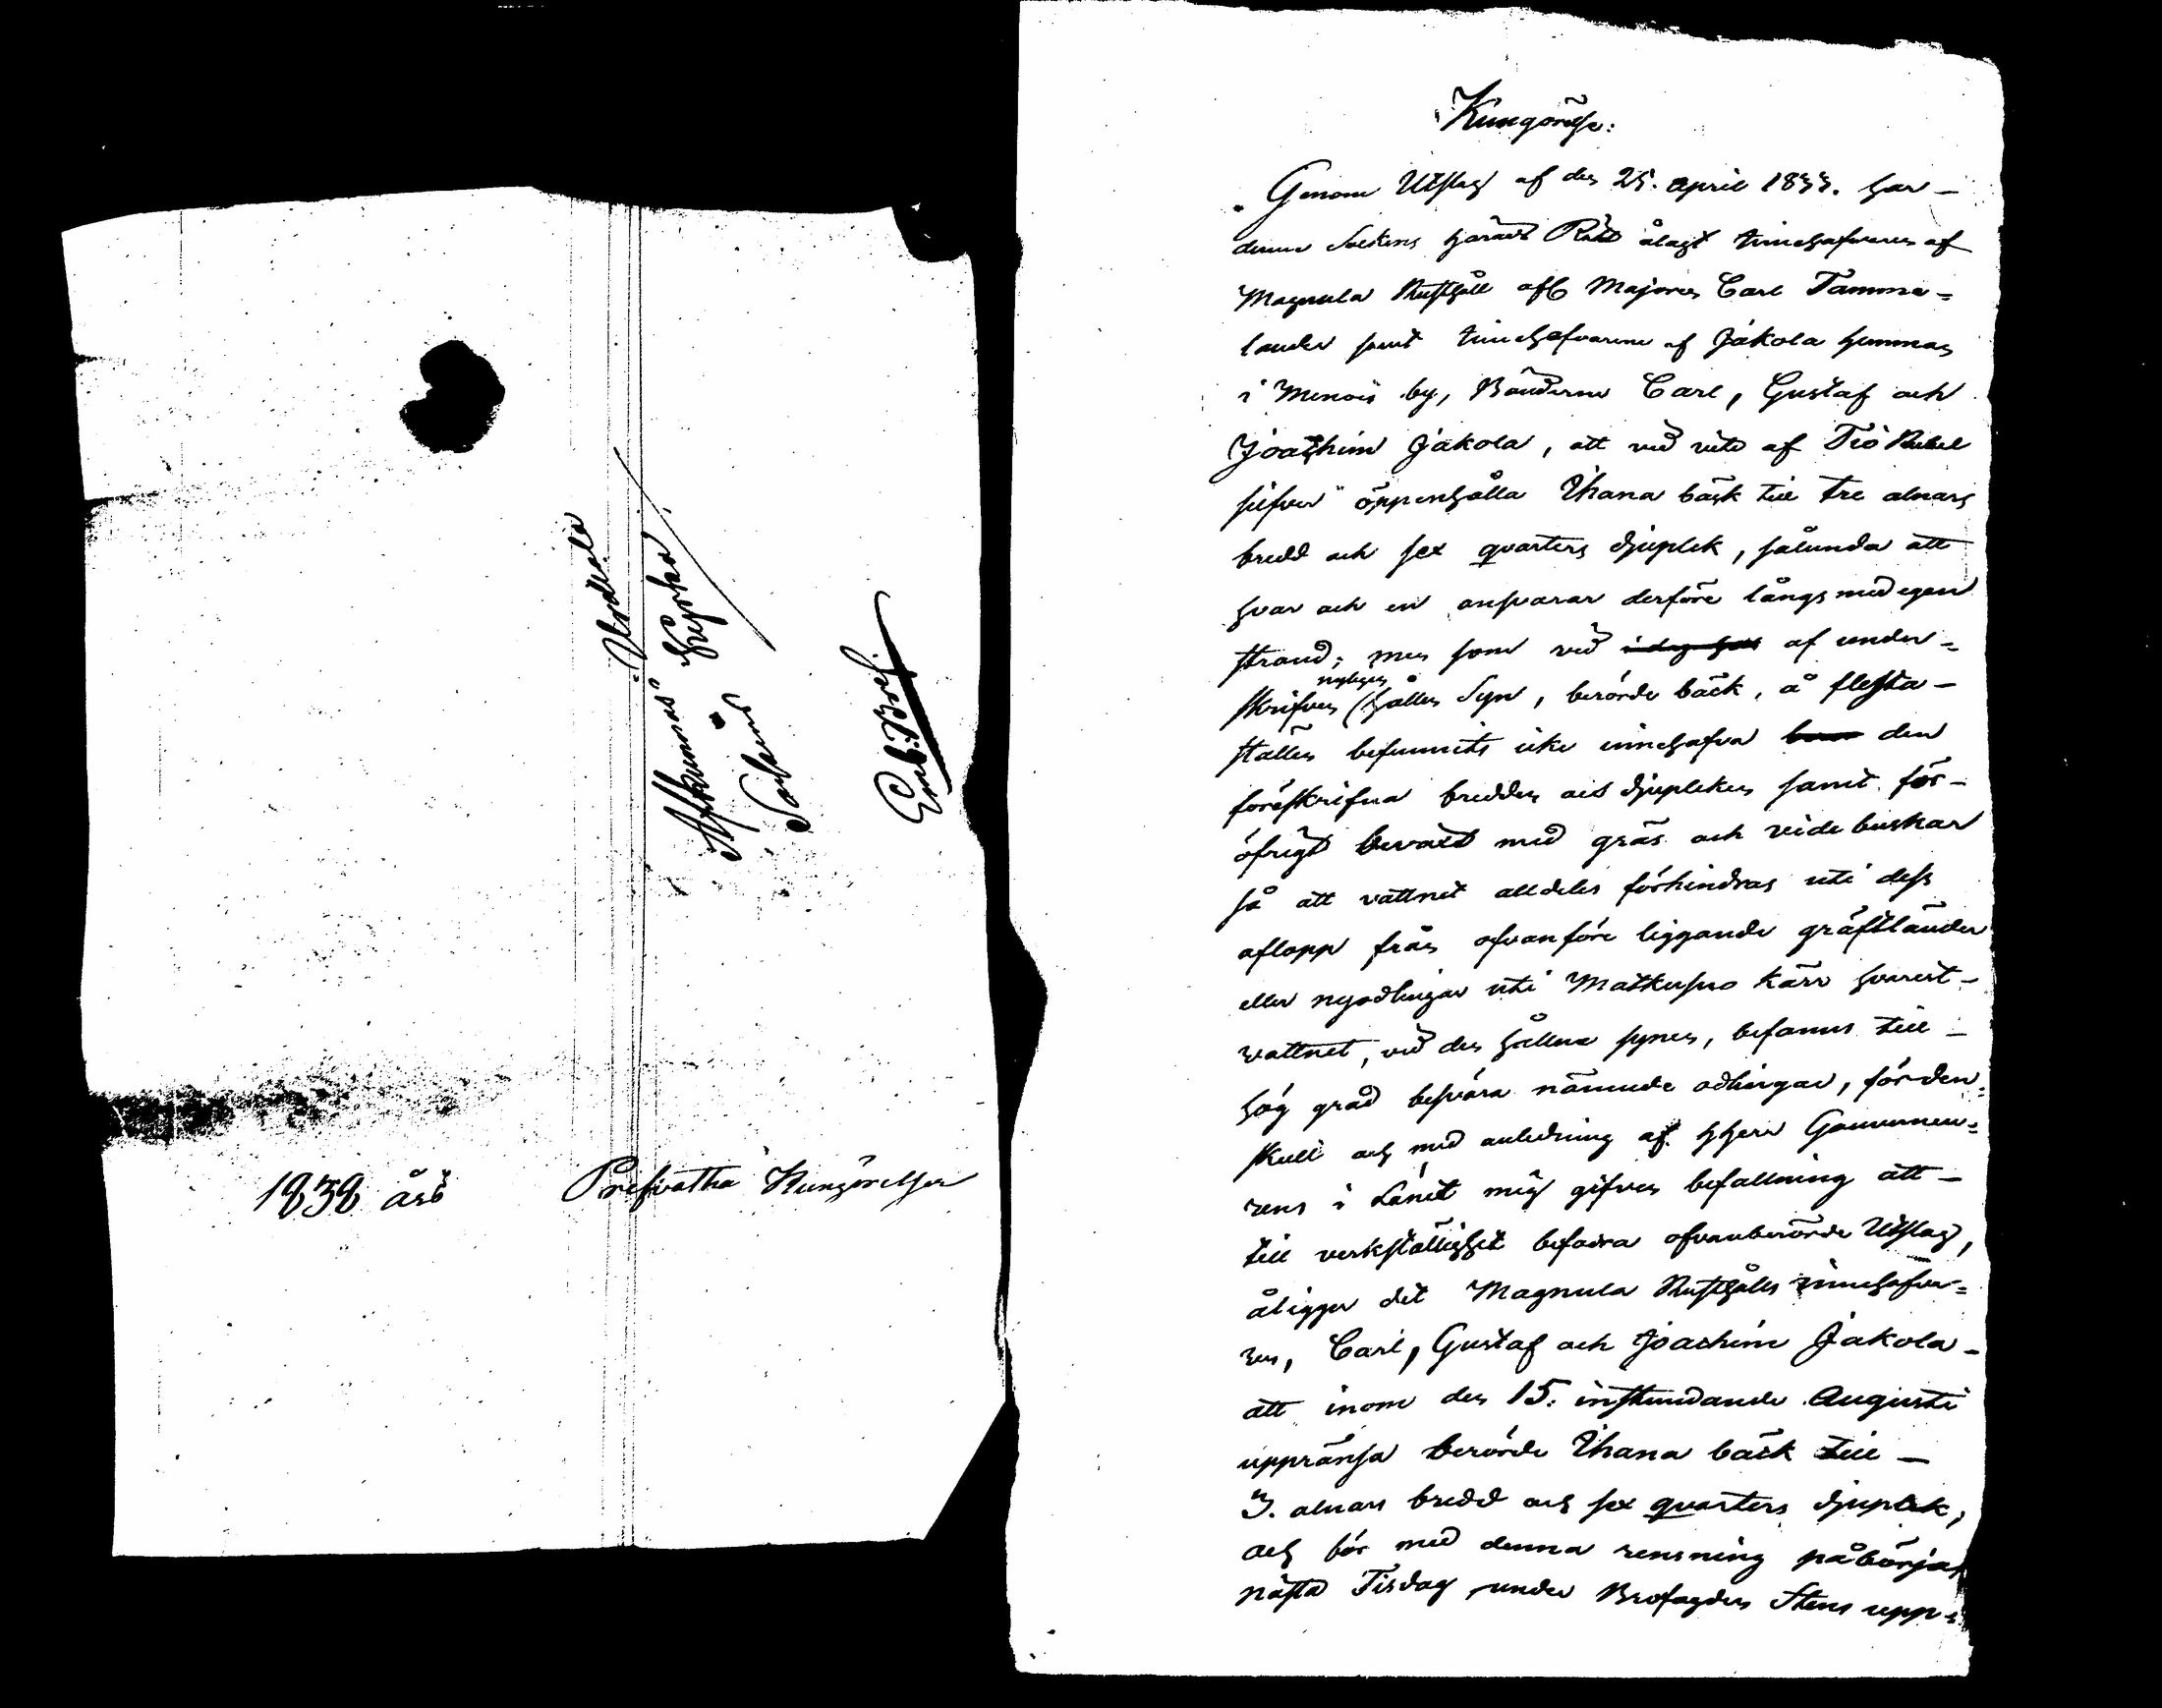 1838 års Prefvatha Kungörelser
Urdiala
Afkunnas Kyrka
Sockens
Emb: Bref.
Kungörelse:
Genom Utslag af den 25. april 1833. har –
denna Sockens härads Rätt ålagt innehafvaren af
Magnula Rusthåll afl Majoren Carl Tamme=
lander samt innehafvarene af Jakola hemman
i Menois by, Bönderne Carl, Gustaf och
Joachim Jakola, att vid vite af Tio Rubel
silfver öppenhålla Uhana bäck till tre alnars
bredd och sex quarters djuplek, sålunda att
hvar och en ansvarar derföre långs med egen
strand; men som vid af under=
skrifven nyligen hållen Syn, berörde bäck, å flesta –
ställen befunnits icke innehafva den
föreskrifna bredden och djupleken samt för –
öfrigt bevaxt med gräs och vide buskar
så att vattnet alldeles förhindras uti dess
aflopp från ofvanföre liggande gräftländer
eller nyodlingar uti Matkusuo kärr hvarest –
vattnet, vid den hållna synen, befanns till –
hög grad besvära nämnde odlingar, för den=
skull och med anledning af HHerr Gouverneu=
rens i Länet mig gifven befallning att –
till verkställighet befodra ofvanberörde Utslag,
åligger det Magnula Rusthålls innehafva=
ren, Carl, Gustaf och Joachim Jakola –
att inom den 15. instundande Augusti
uppränsa berörde Uhana bäck till –
3. alnars bredd och sex quarters djuplek,
och bör med denna rensning påbörjas
nästa Tisdag under Brofogden Stens upp=